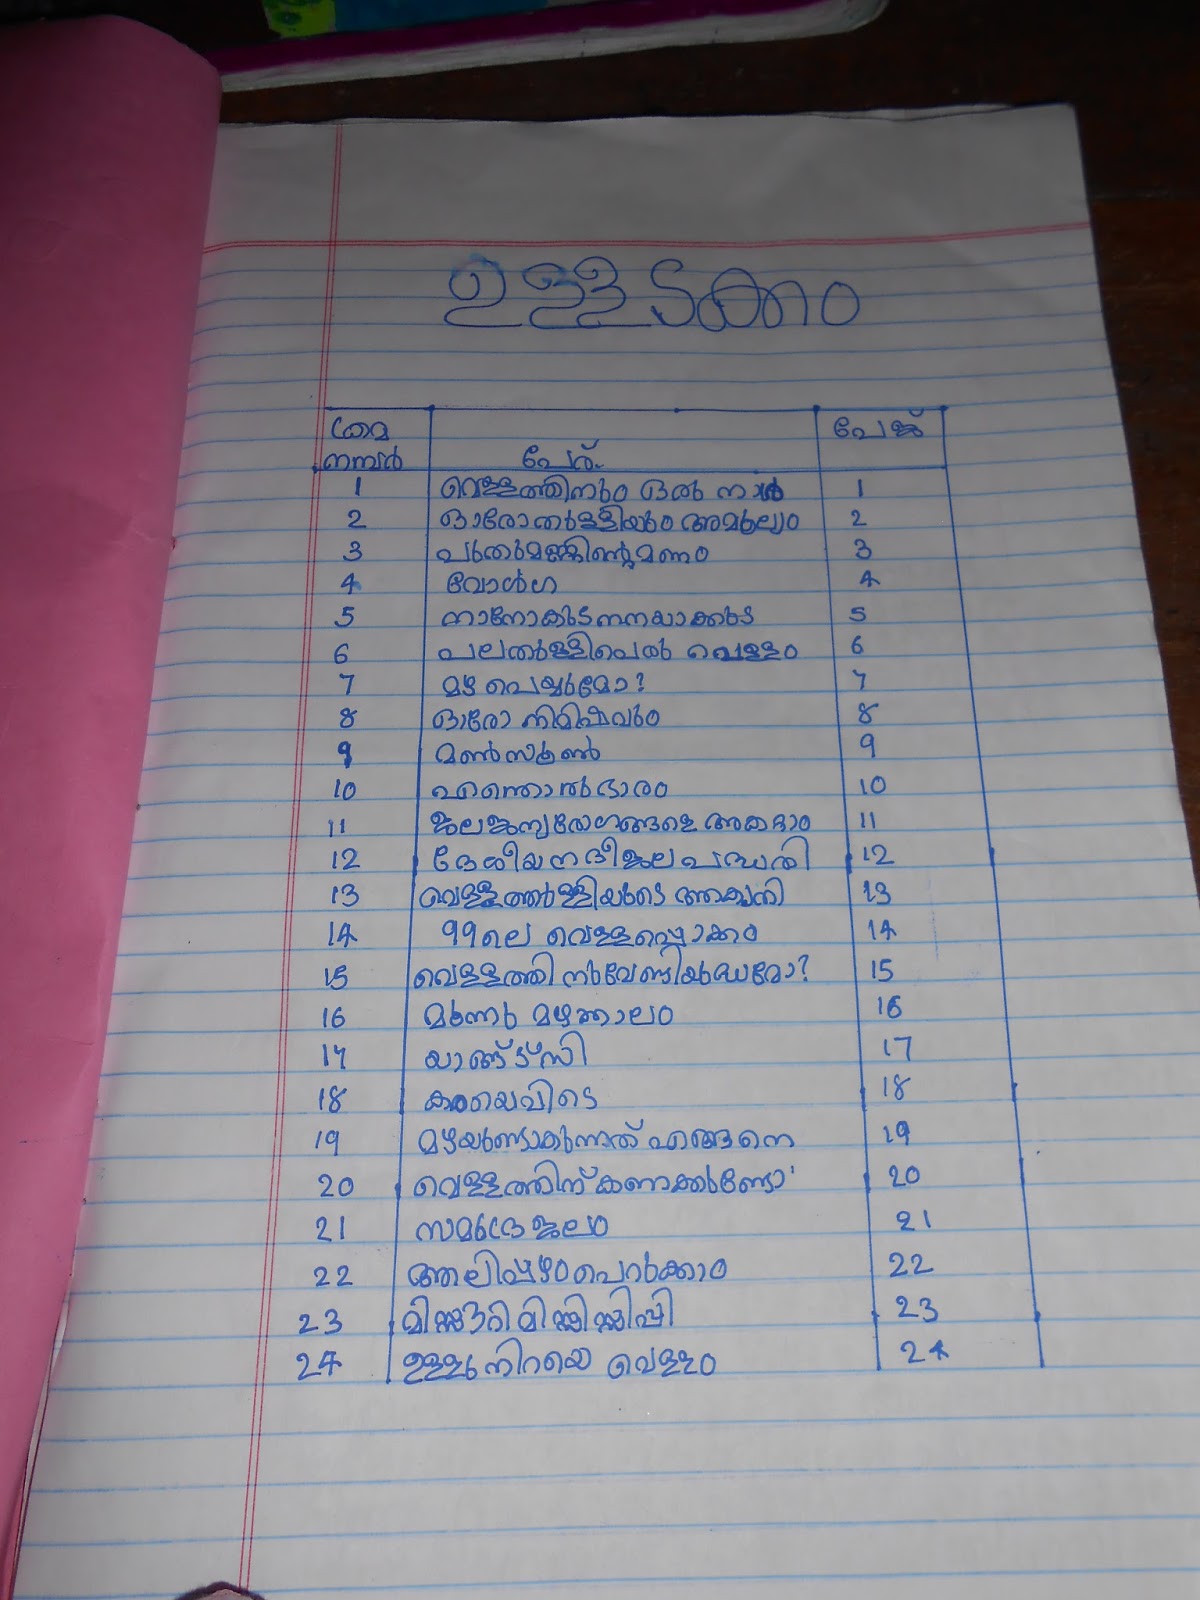 ഉള്ളടക്കം
ക്രമ നമ്പർ പേര് പേജ്
1 വെള്ളത്തിനും ഒരു നാൾ 1
2 ഓരോതുള്ളിയും അമൂല്യം 2
3 പുതുമഴയുടെ മണം 3
4 വോൾഗ 4
5 നാനോകുടനനയാക്കുട 5
6 പലതുള്ളിപെരു വെള്ളം 6
7 മഴ പെയ്യുമോ? 7
8 ഓരോ നിമിഷവും 8
9 മൺസൂൺ 9
10 എന്തൊരുഭാരം 10
11 ജലജന്യരോഗങ്ങളെ അകറ്റാം 11
12 ദേശീയനദീജലപദ്ധതി 12
13 വെള്ളത്തുള്ളിയുടെ 13
14 99ലെ വെള്ളപ്പൊക്കം 14
15 വെള്ളത്തിനുവേണ്ടിയുദ്ധമോ? 15
16 മൂന്നു മഴക്കാലം 16
17 യാങ്ങ്ട്സി 17
18 കരയെവിടെ 18
19 മഴയുണ്ടാകുന്നത് എങ്ങനെ 19
20 വെള്ളത്തിന് കണക്കുണ്ടോ' 20
21 സമുദ്രജലം 21
22 ആലിപ്പഴം പെറുക്കാം 22
23 മിസ്സൗറി മിസ്സിസ്സിപ്പി 23
24 ഉള്ളു നിറയെ വെള്ളം 24